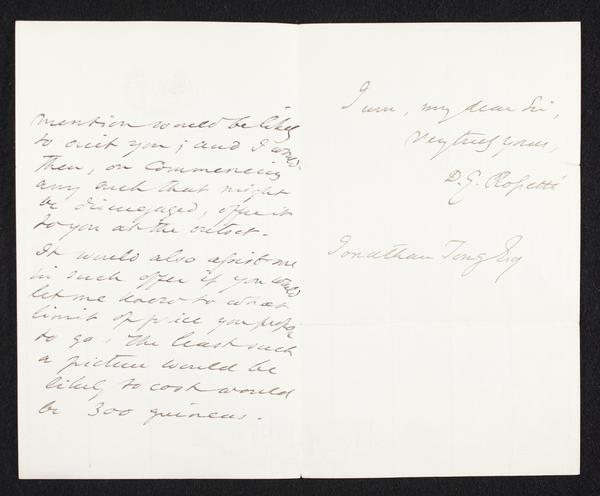 mention would be likely
to suit you; and I would
then, on commencing
any such that might
be disengaged, offer it
to you at the outset.
It would also assist me
in such offer if you would
let me know to what
limit of price you propose
to go. The least such
a picture would be
likely to cost would
be 300 guineas.
I am, my dear Sir,
very truly yours,
D. G. Rossetti
Jonathan Tong Esq